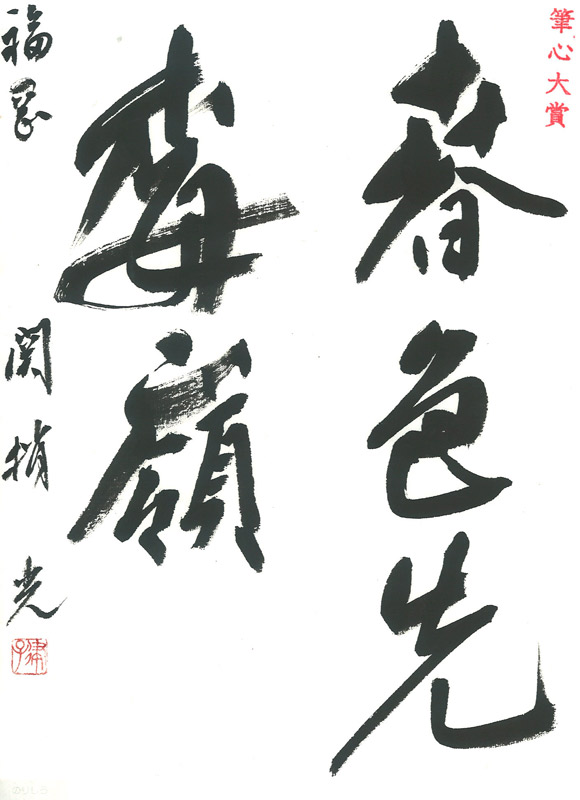 筆心大賞
春色先
梅嶺
福岡 関梢光